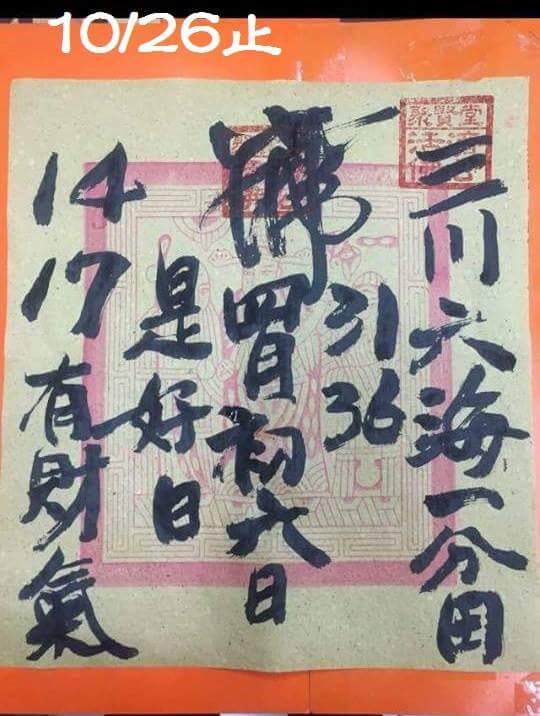 10/26止
聚賢堂
三川六海一分田
31
36
佛
四月初六日
是好日
14
17
有財氣